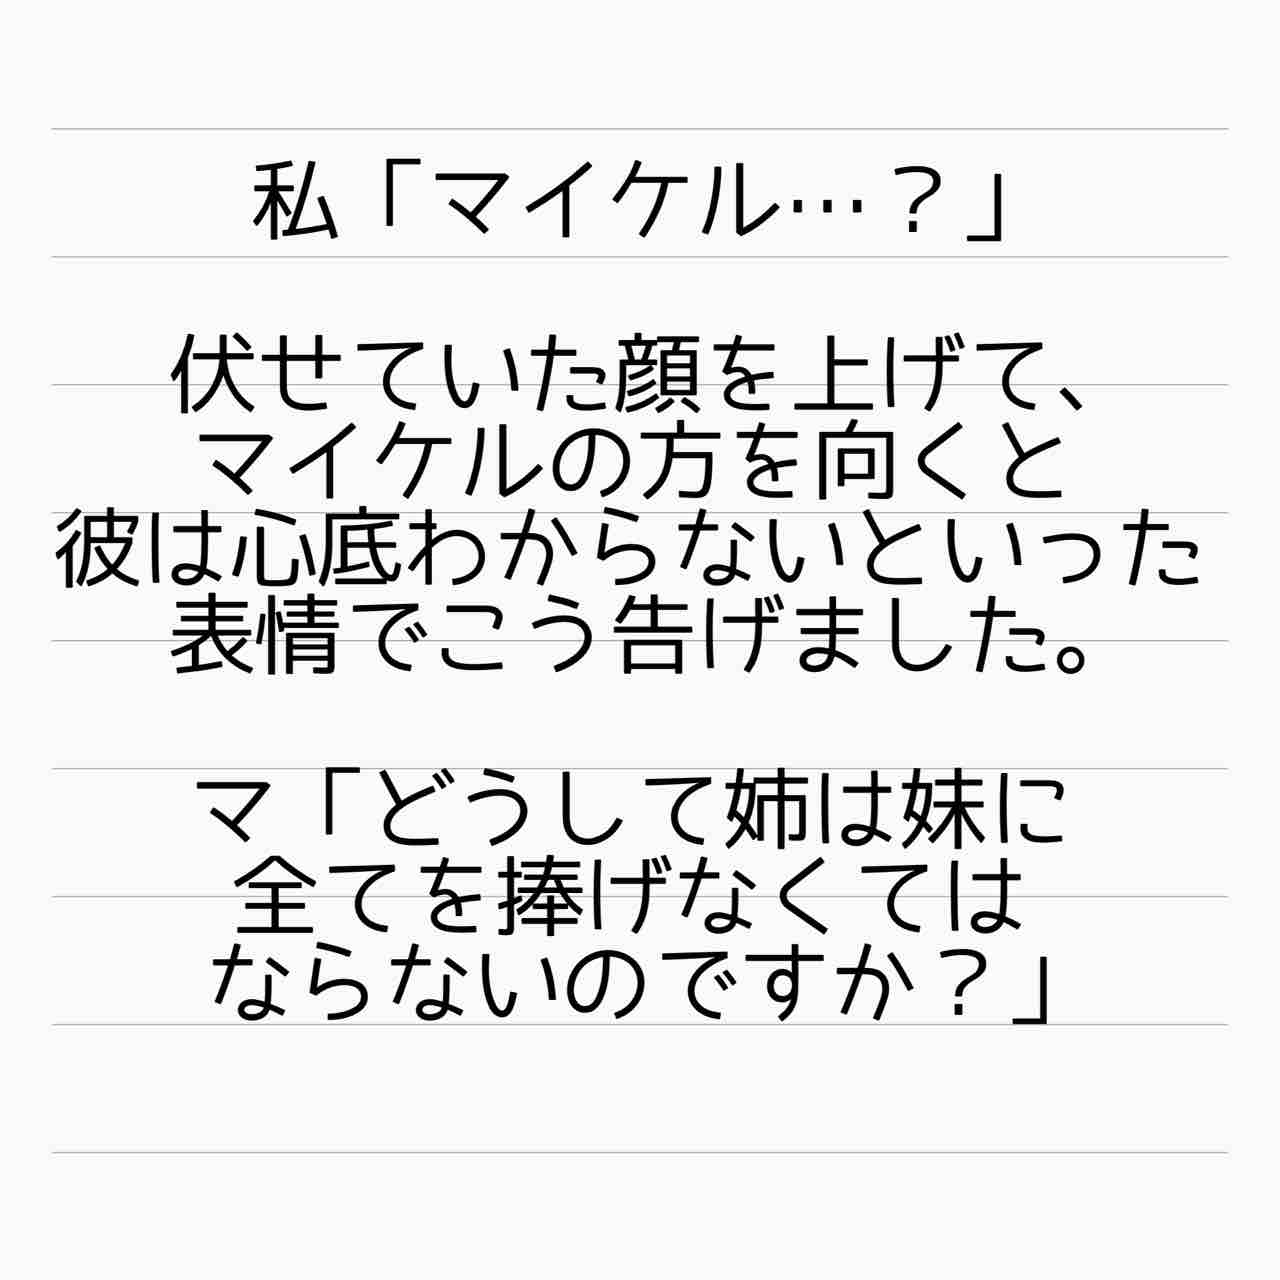 私「マイケル…？」
伏せていた顔を上げて、
マイケルの方を向くと
彼は心底わからないといった
表情でこう告げました。
マ「どうして姉は妹に
全てを捧げなくては
ならないのですか？」